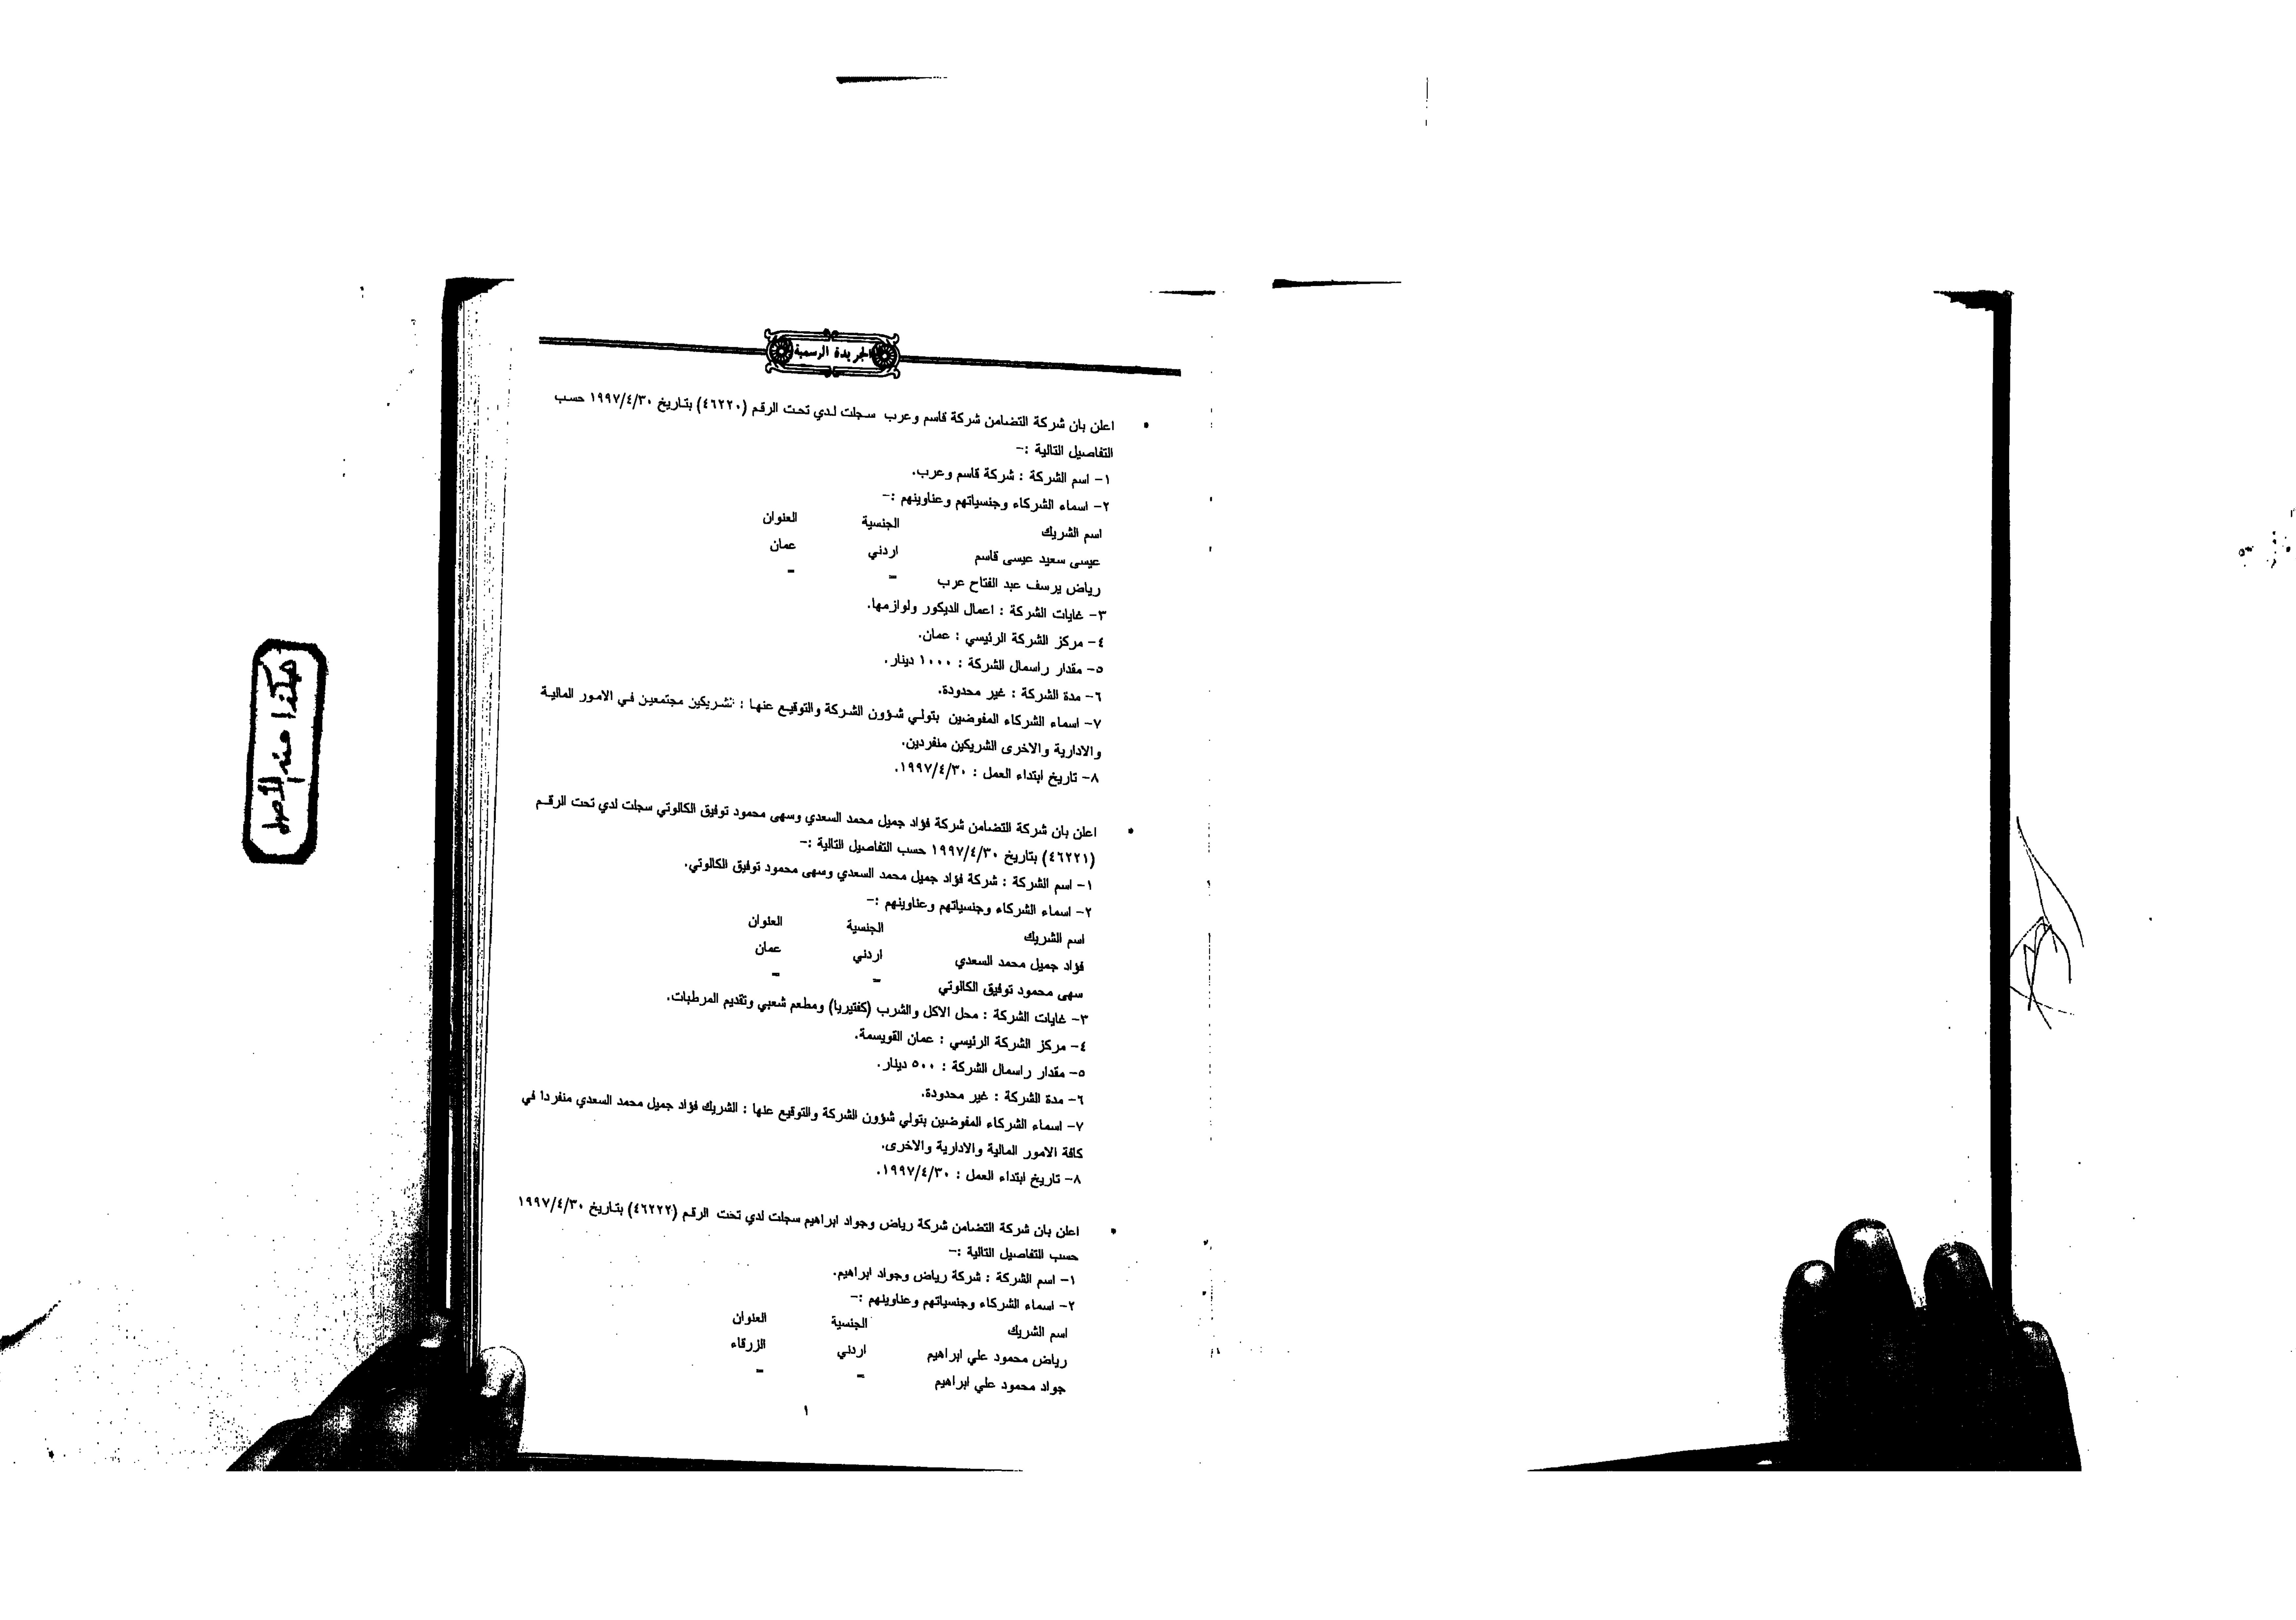 الجريدة الرسمية
• اعلن بان شركة التضامن شركة قاسم وعرب سجلت لدي تحت الرقم (٤٦٢٢٠) بتاريخ ١٩٩٧/٤/٣٠ حسب
التفاصيل التالية :-
١- اسم الشركة : شركة قاسم وعرب.
٢- اسماء الشركاء وجنسياتهم وعناوينهم :-
اسم الشريك الجنسية العنوان
عيسى سعيد عيسى قاسم اردني عمان
رياض يرسف عبد الفتاح عرب = =
٣- غايات الشركة : اعمال الديكور ولوازمها.
٤- مركز الشركة الرئيسي : عمان.
٥- مقدار راسمال الشركة : ١٠٠٠ دينار.
٦- مدة الشركة : غير محدودة.
٧- اسماء الشركاء المفوضين بتولي شؤون الشركة والتوقيع عنها : الشريكين مجتمعين في الامور المالية
والادارية والاخرى الشريكين منفردين.
٨- تاريخ ابتداء العمل : ١٩٩٧/٤/٣٠.
• اعلن بان شركة التضامن شركة فؤاد جميل محمد السعدي وسهى محمود توفيق الكالوتي سجلت لدي تحت الرقم
(٤٦٢٢١) بتاريخ ١٩٩٧/٤/٣٠ حسب التفاصيل التالية :-
١- اسم الشركة : شركة فؤاد جميل محمد السعدي وسهى محمود توفيق الكالوتي.
٢- اسماء الشركاء وجنسياتهم وعناوينهم :-
اسم الشريك الجنسية العنوان
فؤاد جميل محمد السعدي اردني عمان
سهى محمود توفيق الكالوتي = =
٣- غايات الشركة : محل الاكل والشرب (كفتيريا) ومطعم شعبي وتقديم المرطبات.
٤- مركز الشركة الرئيسي : عمان القويسمة.
٥- مقدار راسمال الشركة : ٥٠٠ دينار.
٦- مدة الشركة : غير محدودة.
٧- اسماء الشركاء المفوضين بتولي شؤون الشركة والتوقيع عنها : الشريك فؤاد جميل محمد السعدي منفردا في
كافة الامور المالية والادارية والاخرى.
٨- تاريخ ابتداء العمل : ١٩٩٧/٤/٣٠.
• اعلن بان شركة التضامن شركة رياض وجواد ابراهيم سجلت لدي تحت الرقم (٤٦٢٢٢) بتاريخ ١٩٩٧/٤/٣٠
حسب التفاصيل التالية :-
١- اسم الشركة : شركة رياض وجواد ابراهيم.
٢- اسماء الشركاء وجنسياتهم وعناوينهم :-
اسم الشريك الجنسية العنوان
رياض محمود علي ابراهيم اردني الزرقاء
جواد محمود علي ابراهيم = =
١
هكذا منه الأصل